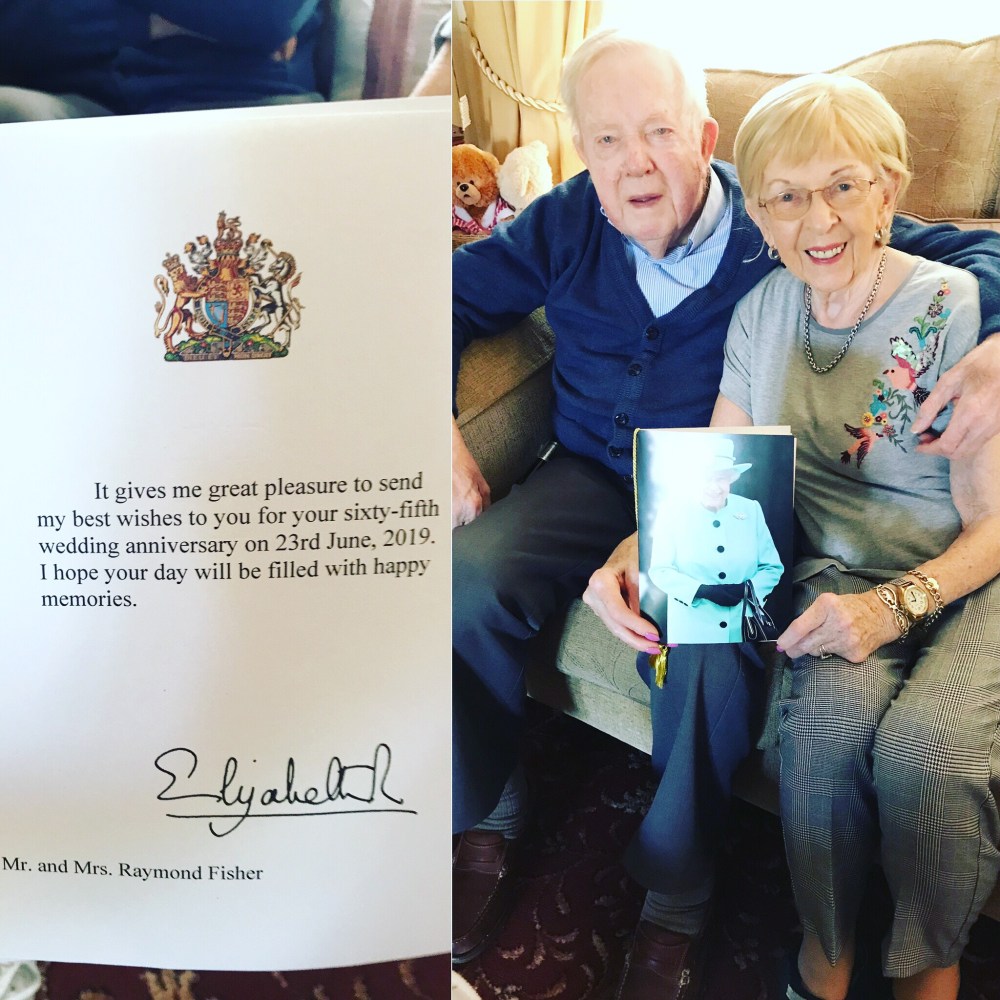 It gives me great pleasure to send
my best wishes to you for your sixty-fifth
wedding anniversary on 23rd June, 2019.
I hope your day will be filled with happy
memories.
Elizabeth R
Mr. and Mrs. Raymond Fisher